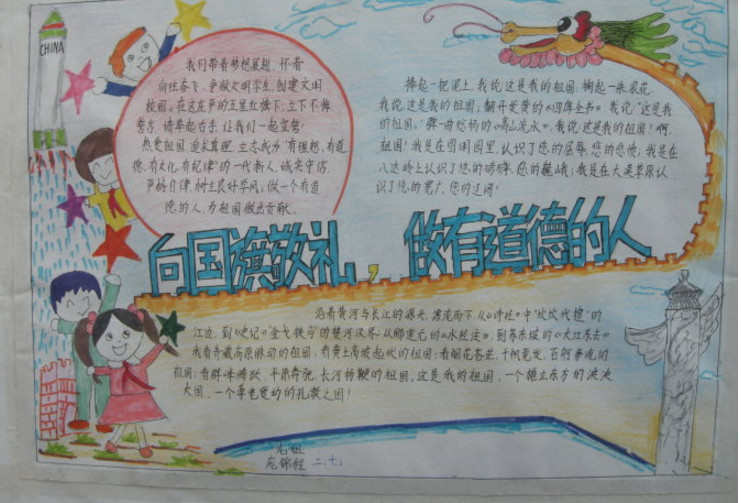 CHINA
我们带着梦想展翅,怀着
向往奋飞,争做文明学生,创建文明
校园,在这庄严的五星红旗下,立下不悔
誓言,请举起右手,让我们一起宣誓:
热爱祖国,追求真理,立志成为"有理想,有道
德,有文化,有纪律"的一代新人,诚实守信,
严格自律,树立良好学风,做一个有道
德的人,为祖国做出贡献。
捧起一把泥土,我说,这是我的祖国;掬起一朵浪花,
我说,这是我的祖国;翻开尘封的《四库全书》,我说,"这是我
的祖国。"弹一曲悠扬的《高山流水》,我说,这是我的祖国!啊,
祖国!我是在圆明园里,认识了您的屈辱,您的悲愤;我是在
八达岭上认识了您的
我是在大漠草原认
识了您的宽广,您的辽阔!
向国旗敬礼,做有道德的人
沿着黄河与长江的源头,漂流而下,从《诗经》中"坎坎伐檀"的
江边,到《史记》"金戈铁马"的楚河汉界;从郦道元的《水经注》,到苏东坡的《大江东去》
我看青藏高原脉动的祖国;看黄土高坡起伏的祖国;看烟花苍茫,千帆竞发,百舸争流的
祖国;看群峰腾跃,平原奔驰,长河扬鞭的祖国。这是我的祖国,一个雄立东方的泱泱
大国,一个享誉四方的礼教之国!
二、七、